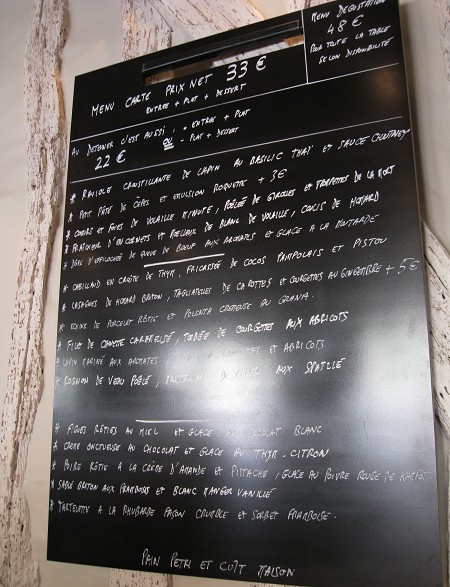 MENU DÉGUSTATION
48 €
POUR TOUTE LA TABLE
SELON DISPONIBILITÉ
MENU CARTE PRIX NET 33 €
ENTRÉE + PLAT + DESSERT
AU DEJEUNER C'EST AUSSI : - ENTRÉE + PLAT
22 € OU - PLAT + DESSERT
* RAVIOLE CROUSTILLANTE DE LAPIN AU BASILIC THAÏ ET SAUCE CHUTNEY
* PETIT PÂTÉ DE CÈPES ET EMULSION ROQUETTE + 3€
* COEURS ET FOIES DE VOLAILLE MINUTE, POÊLÉE DE GIROLLES ET TROMPETTES DE LA MORT
* FRAÎCHEUR D'EN CORNETS ET MOELLEUX DE BLANC DE VOLAILLE, COULIS DE HOMARD
* D'EFFILOCHÉE DE QUEUE DE BOEUF AUX AROMATES ET GLACE A LA MOUTARDE
* CABILLAUD EN CROÛTE DE THYM, FRICASSÉE DE COCOS PAIMPOLAIS ET PISTOU
* LASAGNES DE HOMARD BRETON, TAGLIATELLES DE CAROTTES ET COURGETTES AU GINGEMBRE + 5€
* DE PORCELET RÔTIE ET POLENTA CREMEUSE AU
* FILET DE CANETTE CARAMELISÉ, DE COURGETTES AUX ABRICOTS
* LAPIN MARINÉ AUX AROMATES ET ABRICOTS
* ROGNON DE VEAU POÊLÉ, AUX
* FIGUES RÔTIES AU MIEL ET GLACE CHOCOLAT BLANC
* CREME ONCTUEUSE AU CHOCOLAT ET GLACE AU THYM - CITRON
* POIRE RÔTIE A LA CRÈME D'AMANDE ET PISTACHE, GLACE AU POIVRE ROUGE DE
* SABLÉ BRETON AUX FRAMBOISES ET BLANC MANGER VANILLÉ
* TARTELETTE A LA RHUBARBE FAÇON CRUMBLE ET SORBET FRAMBOISE.
PAIN PETRI ET CUIT MAISON